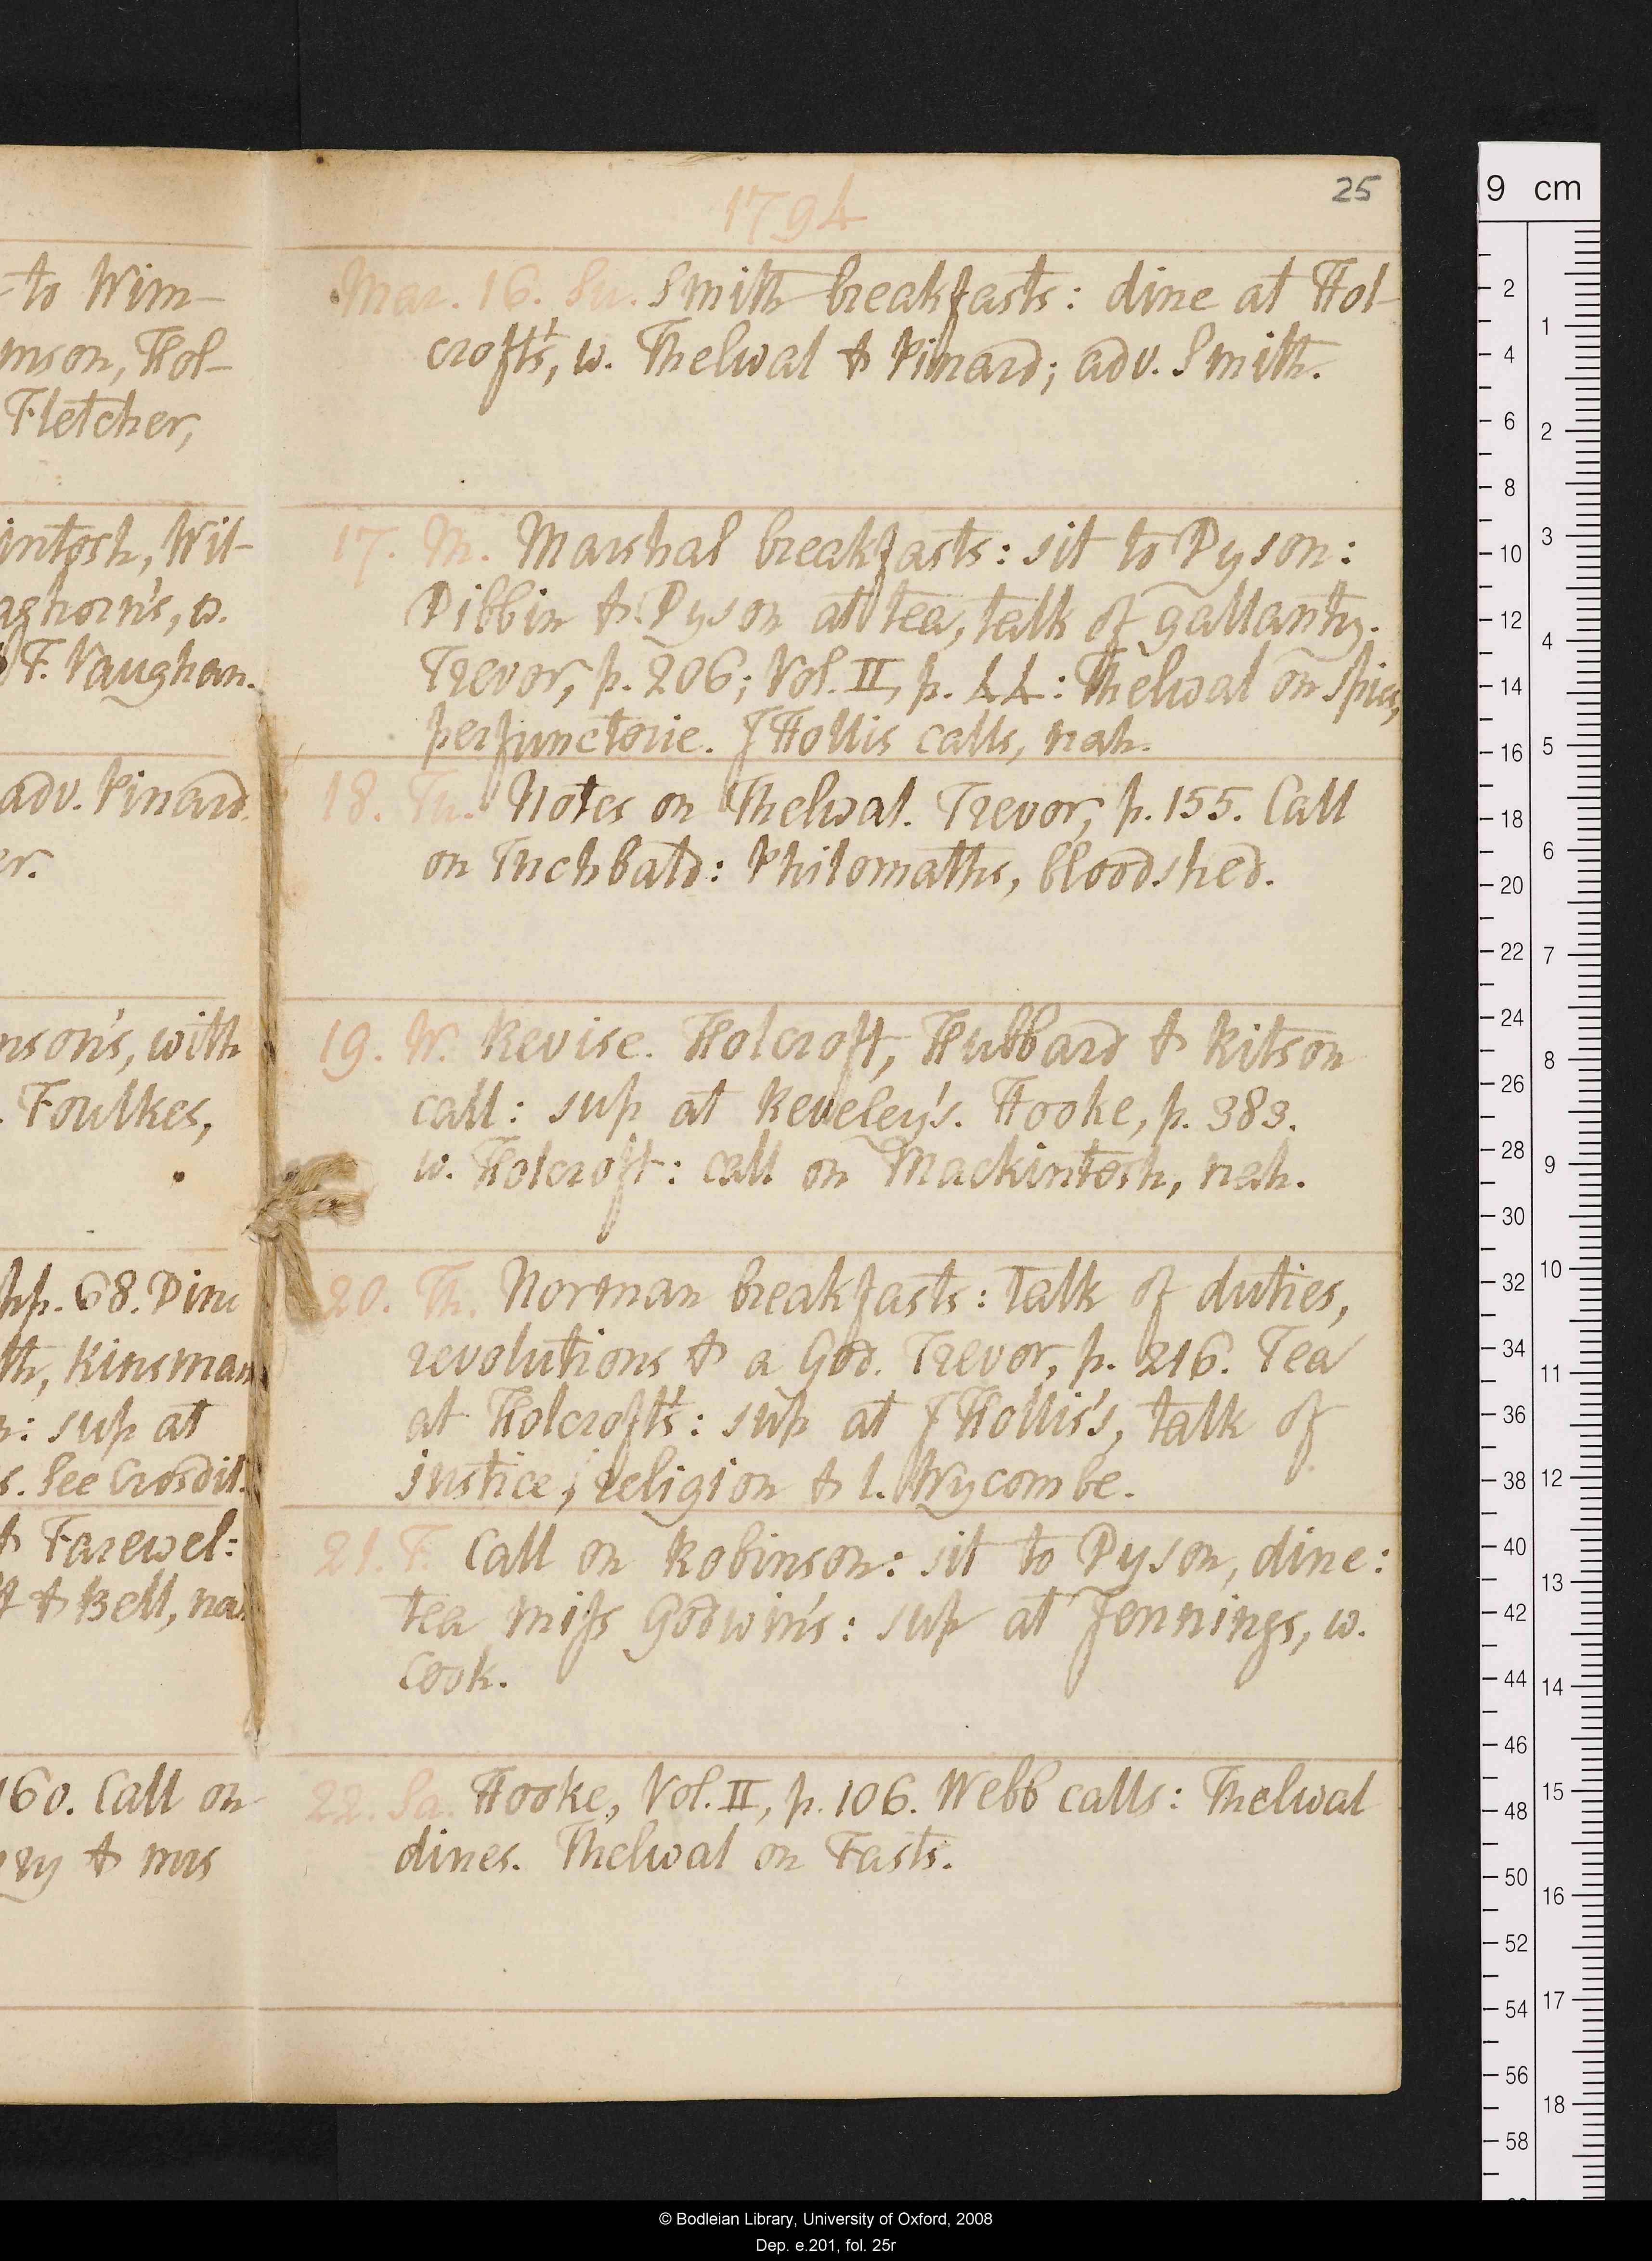 to Wim-
mson, Hol-
Fletcher,
intosh, Wil-
aghorn's, w.
F. Vaughan.
adv. Pinard.
er.
nson's, with
. Foulkes,
pp. 68. Dine
th, Kinsman
n: sup at
s. See Crosdil.
& Farewel:
& Bell, nah
160. Call on
ry & mrs
1794
25
Mar. 16. Su. Smith breakfasts: dine at Hol-
croft's, w. Thelwal & Pinard; adv. Smith.
17. M. Marshal breakfasts: sit to Dyson:
Dibbin & Dyson at tea, talk of gallantry.
Trevor, p. 206; Vol. II, p. 44: Thelwal on Spies,
perfunctorie. J Hollis calls, nah.
18. Tu. Notes on Thelwal. Trevor, p. 155. Call
on Inchbald: Philomaths, bloodshed.
19. W. Revise. Holcroft, Hubbard & Ritson
call: sup at Reveley's. Hooke, p. 383.
w. Holcroft: call on Mackintosh, nah.
20. Th. Norman breakfasts: talk of duties,
revolutions & a God. Trevor, p. 216. Tea
at Holcroft's: sup at J Hollis's, talk of
justice, religion & l. Wycombe.
21. F. Call on Robinson: sit to Dyson, dine:
tea miss Godwin's: sup at Jennings, w.
Cook.
22. Sa. Hooke, Vol. II, p. 106. Webb calls: Thelwal
dines. Thelwal on Fasts.
9 cm
2
4
6
8
10
12
14
16
18
20
22
24
26
28
30
32
34
36
38
40
42
44
46
48
50
52
54
56
58
1
2
3
4
5
6
7
8
9
10
11
12
13
14
15
16
17
18
© Bodleian Library, University of Oxford, 2008
Dep. e.201, fol. 25r